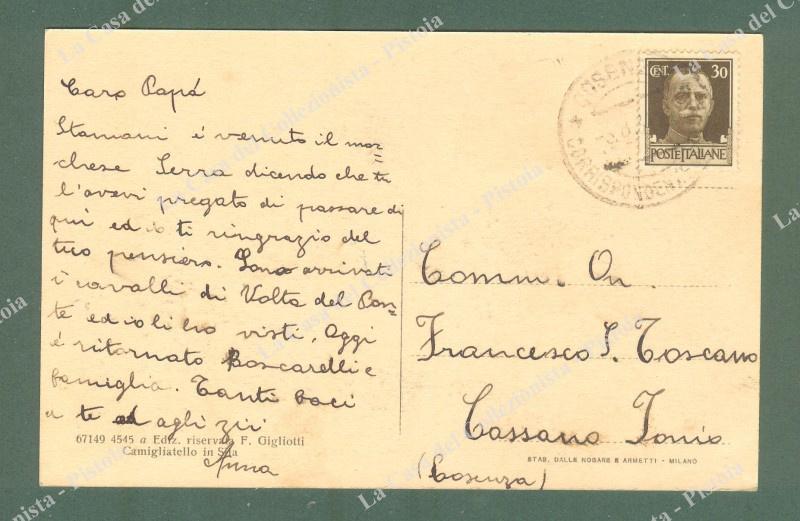 Caro Papá
Stamani é venuto il mar=
chese Serra dicendo che tu
l'avevi pregato di passare di
quì ed io ti ringrazio del
tuo pensiero. Sono arrivati
i cavalli di Volta del Pon=
te ed io li ho visti. Oggi
é ritornato Boscarelli e
famiglia. Tanti baci
a te ed agli zii
67149 4545 a Ediz. riservata F. Gigliotti
Camigliatello in Sila
CENT. 30
POSTE ITALIANE
CORRISPONDENZ
Comm. On.
Francesco S. Toscano
Cassano Jonio
(Cosenza)
STAB. DALLE NOGARE E ARMETTI - MILANO
La Casa del Collezionista - Pistoia